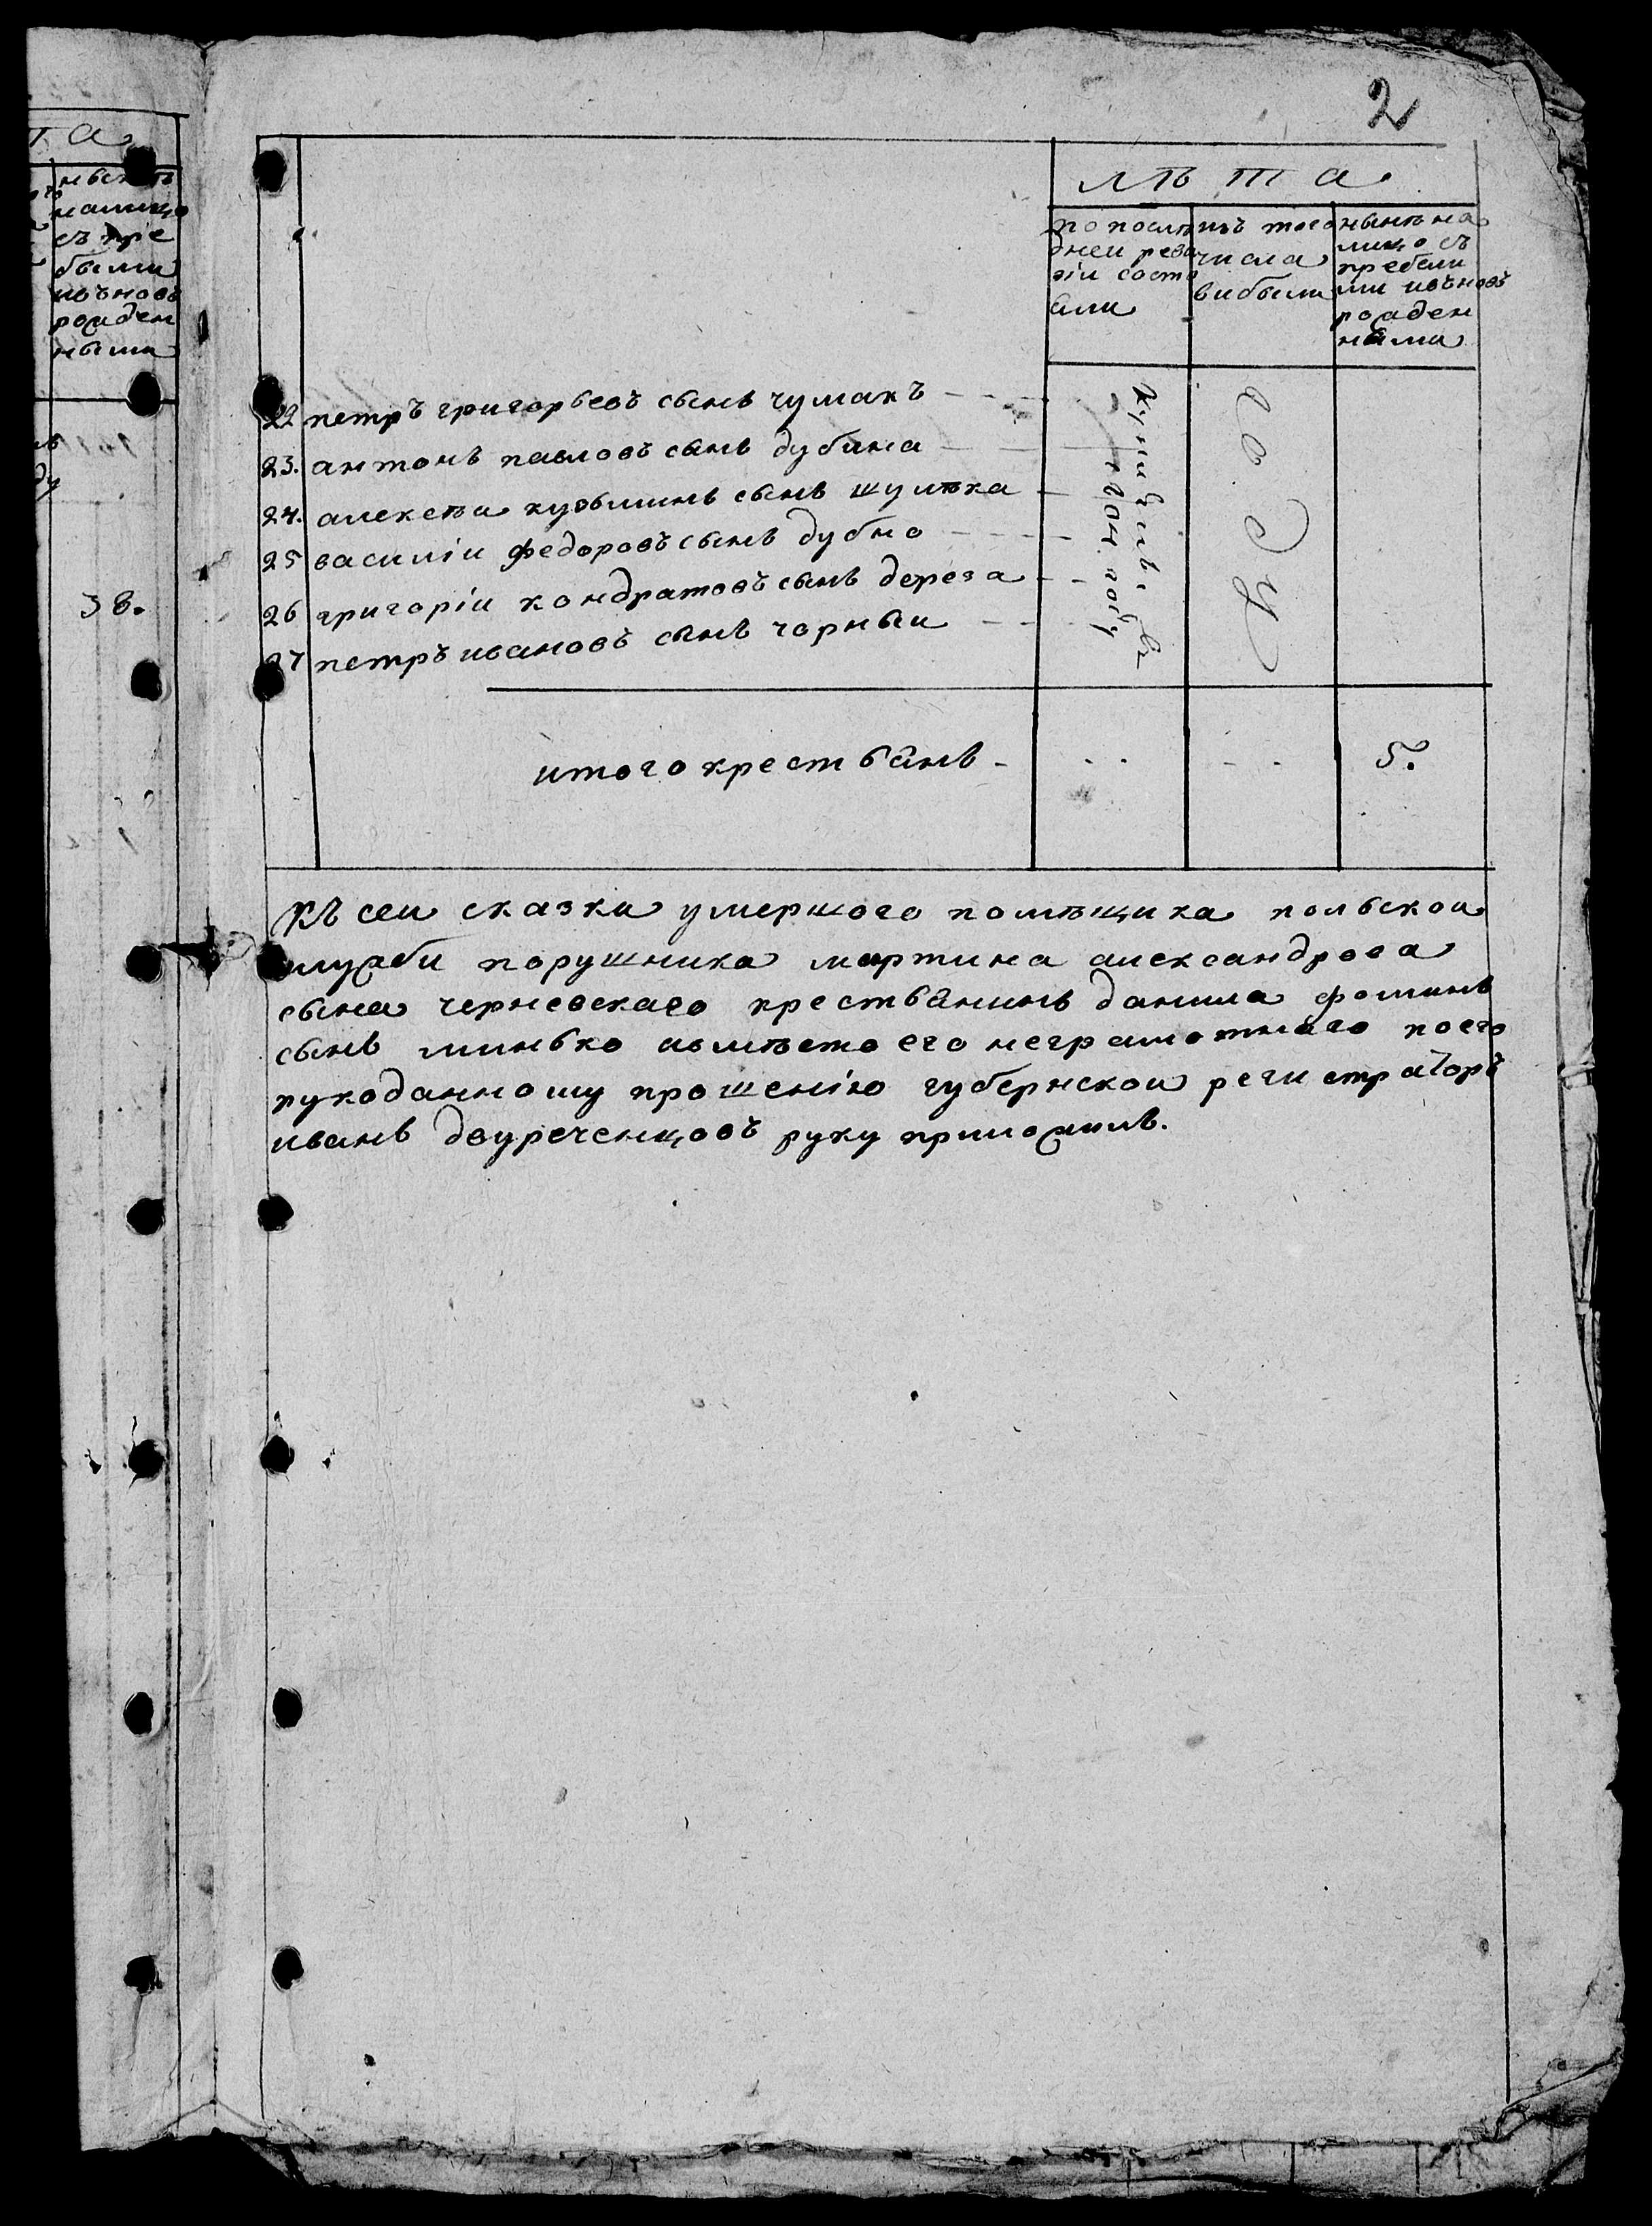 2
лѣта
по послѣ
дней реви
зіи состо
яли
изъ того
числа
выбыли
нынѣ на
лицо съ
прибыли
ми и вновь
рожден
ными
22 петръ григорьевъ сынъ чумакъ
23. антонъ павловъ сынъ дубина
24. алексѣи кузьминъ сынъ шулѣка
25 василіи федоровъ сынъ дубно
26 григоріи кондратовъ сынъ дереза
27 петръ ивановъ сынъ чорныи
году
итого крестьянъ
5.
Къ сеи сказки умершого помѣщика польскои
службы порушника мартина александрова
сына черневскаго крестьянинъ данила фоминъ
сынъ минько авмѣсто его неграмотнаго поего
рукоданному прошенію губернскои регистраторъ
иванъ двуреченцовъ руку приложилъ.
та
нынѣ
налицо
съ при
были
и вновь
рожден
ными
38.